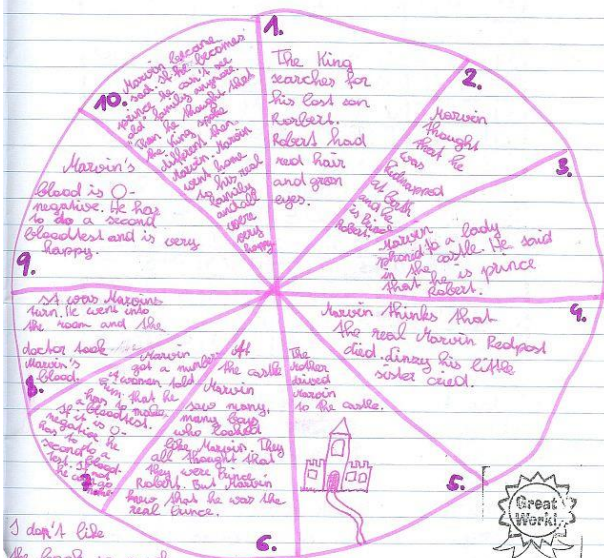 1.
The King
searches for
his lost son
Robert.
Robert had
red hair
and green
eyes.
2.
Marvin
thought
that he
was
Kidnapped
at birth
and he
is Prince
Robert.
3.
Marvin phoned a lady
in the castle. He said
that he is prince
Robert.
4.
Marvin thinks that
the real Marvin Redpost
died. Linzy his little
sister cried.
5.
The
mother
drived
Marvin
to the castle.
6.
At
the castle
Marvin
saw many,
many boys
who looked
like Marvin. They
all thought that
they were Prince
Robert. But Marvin
knew that he was the
real Prince.
7.
Marvin
got a number.
A women told
him that he
has to make
a bloodtest.
If it is O-
negative he
has to do a
second blood-
test. If not
he can go
home.
8.
It was Marvins
turn. He went into
the room and the
doctor took
Marvin's
blood.
9.
Marvin's
blood is O-
negative. He has
to do a second
bloodtest and is very
happy.
10.
Marvin became
sad. If he becomes
prince he can't see
"old" family anymore.
Then he thought that
the King spoke
different than
Marvin. Marvin
went home
to his real
family
and all
were
very
happy.
I don't like
the book
Great
Work!